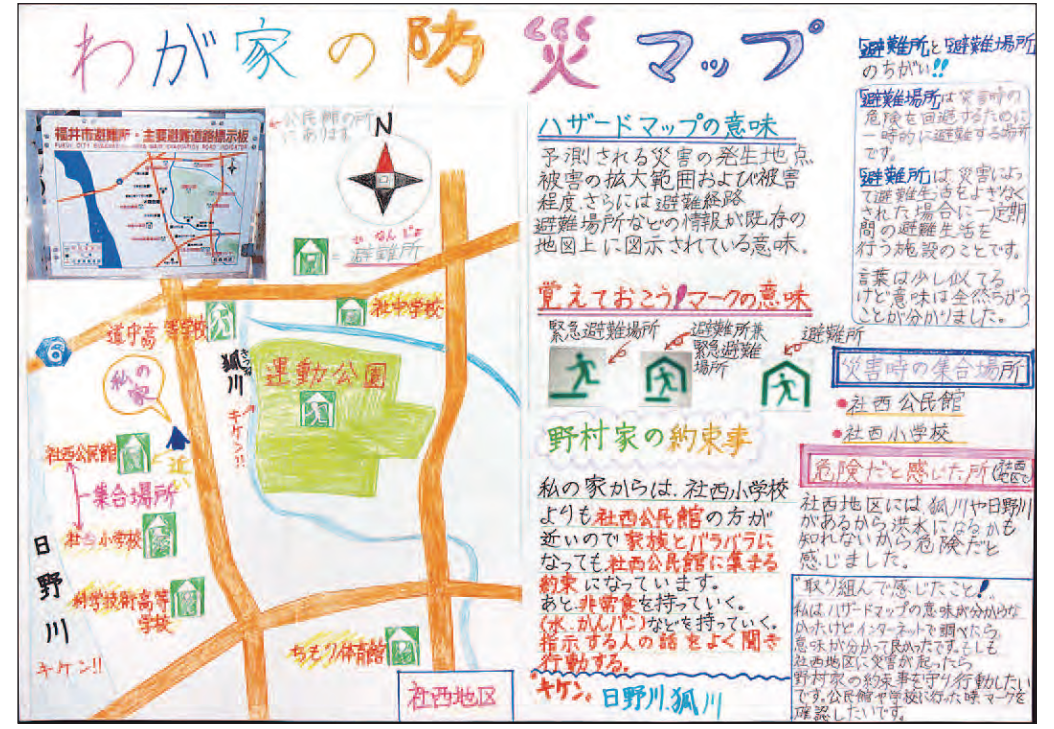 わが家の防災マップ
福井市避難所・主要避難道路標示板
公民館の所
にあります。
N
ひなんじょ
=避難所
道守高等学校
社中学校
6
私の家
きつね
狐川
キケン!!
運動公園
社西公民館
近い
集合場所
社西小学校
日野川
キケン!!
科学技術高等
学校
ちもり体育館
社西地区
ハザードマップの意味
予測される災害の発生地点
被害の拡大範囲および被害
程度、さらには避難経路
避難場所などの情報が既存の
地図上に図示されている意味。
覚えておこう!マークの意味
緊急避難場所
避難所兼
緊急避難
場所
避難所
野村家の約束事
私の家からは、社西小学校
よりも社西公民館の方が
近いので家族とバラバラに
なっても社西公民館に集まる
約束になっています。
あと、非常食を持っていく。
(水、かんパン)などを持っていく。
指示する人の話をよく聞き
行動する。
キケン。日野川、狐川
「避難所」と「避難場所」
のちがい!!
「避難場所」は災害時の
危険を回避するために
一時的に避難する場所
です。
「避難所」は災害によっ
て避難生活をよぎなく
された場合に一定期
間の避難生活を
行う施設のことです。
言葉は少し似てる
けど意味は全然ちがう
ことが分かりました。
災害時の集合場所
•社西公民館
•社西小学校
危険だと感じた所
社西地区には狐川や日野川
があるから洪水になるかも
知れないから危険だと
感じました。
取り組んで感じたこと!
私はハザードマップの意味が分からな
かったけどインターネットで調べたら
意味が分かって良かったです。もしも
社西地区に災害が起ったら
野村家の約束事を守り行動したい
です。公民館や学校に行った時、マークを
確認したいです。